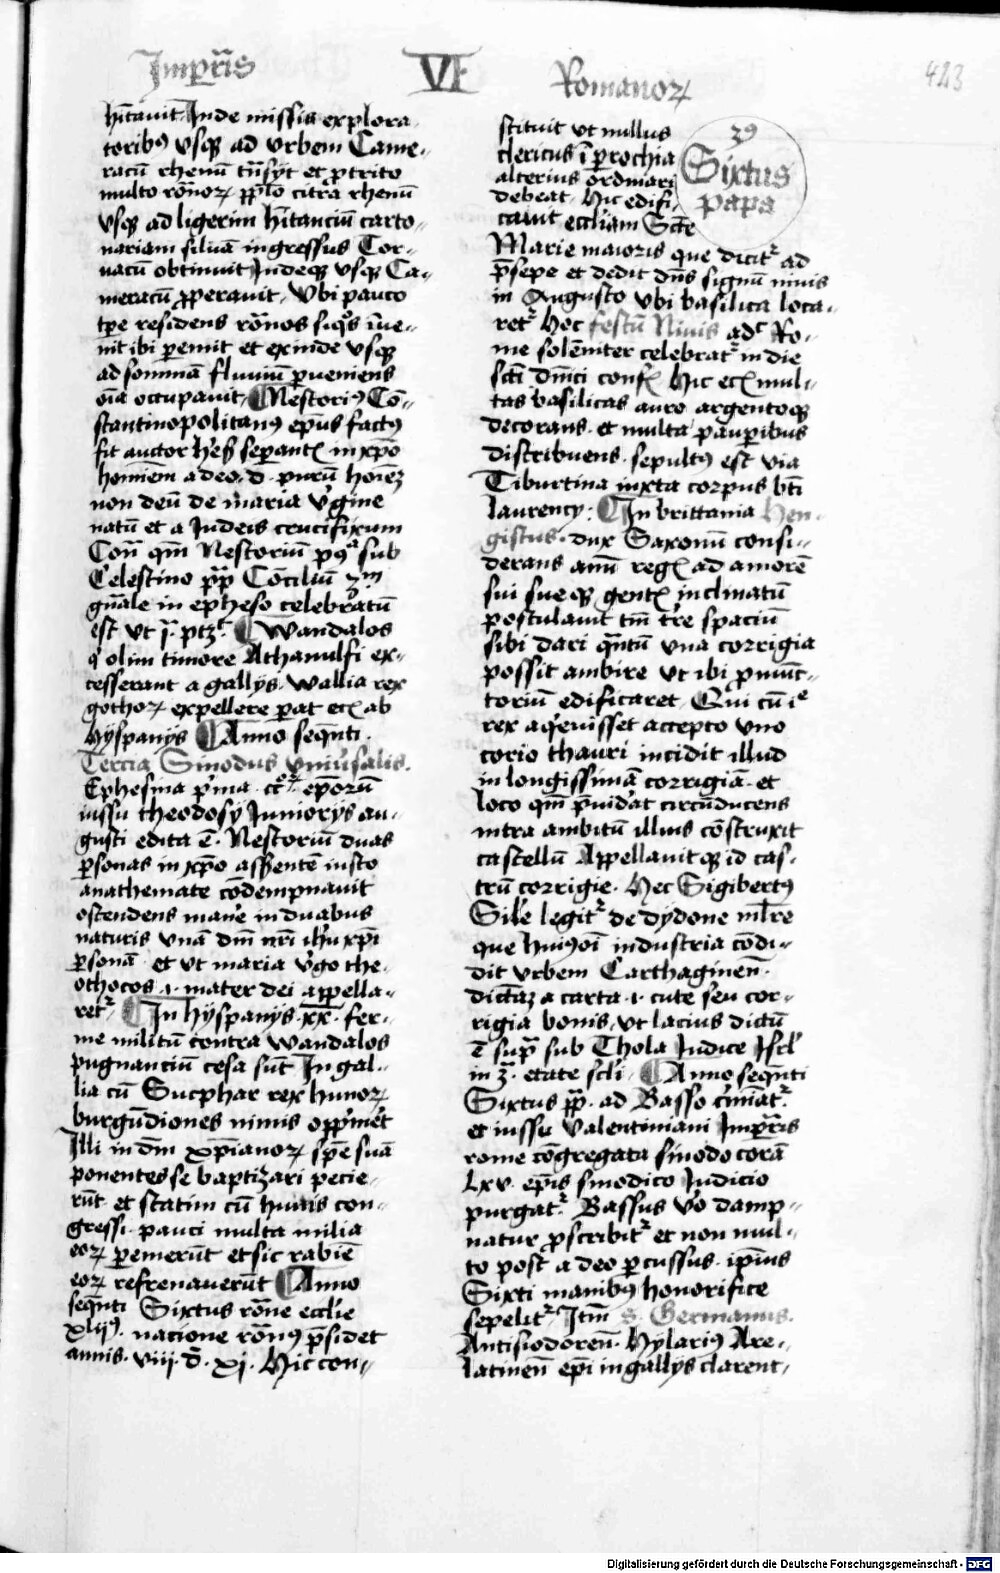 Imꝑr̄is VI Romanoꝝ
423
hītavit Inde missis explora-
toribꝰ usqꝫ ad urbem Came-
racū rhenū tn̄siit et ꝓtrito
multo rōnoꝝ ppl̄o citra rhenū
usqꝫ ad ligerim hītanciū carto-
nariam silvā ingressus Tor-
nacū obtinuit Indeqꝫ usqꝫ Ca-
meracū ꝓperavit, Ubi pauco
tp̄e residens rōnos siq̄os īve-
nit ibi ꝑemit et exinde usqꝫ
ad sommā fluviū ꝑveniens
oīa occupavit, Nestoriꝰ Cō-
stantinopolitanꝰ ep̄us factꝰ
fit auctor hēs sepant̄ in xp̄o
hominem a deo .d. purū hoīez
non deū de maria v̄gine
natū et a Judeis crucifixum
Con̄ qm̄ Nestoriū pꝰ sub
Celestino pp̄ Cōciliū 3m
gn̄ale in epheso celebratū
est ut j. ptꝫ. Wandalos
q̄ olim timore Athanulfi ex-
cesserant a gallijs. Wallia rex
gothoꝝ expellere ꝑat eciā ab
hyspanijs Anno seqn̄ti.
Tercia Sinodus univ̄salis.
Ephesina p̄ma .cc. ep̄orū
iussu theodosij Iunioris au-
gusti edita ē. Nestoriū duas
ꝑsonas in xp̄o asserentē iusto
anathemate cōdempnavit
ostendens manē in duabus
naturis unā dm̄ nr̄i ih̄u xp̄i
ꝑsonā et ut maria v̄go the-
othocos .i. mater dei appella-
ret̄. In hyspanijs .xx. fer-
me militū contra wandalos
pugnanciū cesa sūt In gal-
lia cū Sucphar rex hunoꝝ
burgūdiones nimis opp̄met
Illi in dm̄ xp̄ianoꝝ spē suā
ponentes se baptizari pecie-
rūt et statim cū hunis con-
gressi. pauci multa milia
eoꝝ ꝑemerūt et sic rabiē
eoꝝ refrenaverūt Anno
seqn̄ti Sixtus rōne eccl̄ie
xliijꝰ. nacione rōnꝰ p̄sidet
annis .viii. d̄. xj. Hic con-
stituit ut nullus
clericus ī ꝑrochia
alterius ordinari
debeat. Hic edifi-
cavit eccl̄iam Sct̄e
3ꝰ
Sixtus
papa
Marie maioris que dicit̄ ad
p̄sepe et dedit dn̄s signū nivis
in Augusto ubi basilica loca-
ret̄ Hoc festū Nivis adc̄ Ro-
me solēniter celebrat̄ in die
sct̄i Dm̄ici confes̄. Hic eciā mul-
tas basilicas auro argentoqꝫ
decorans. et multa pauꝑibus
distribuens. sepultꝰ est via
Tiburtina iuxta corpus bt̄i
laurencij: In brittania Hen-
gistus. dux Saxonū consi-
derans aīm regis ad amorē
sui sueqꝫ gentis inclinatū
postulavit tm̄ tre spaciū
sibi dari qn̄tū una corrigia
possit ambire ut ibi p̄muni-
toriū edificaret, Qui cū ie
rex aq̄evisset accepto uno
corio thauri incidit illud
in longissimā corrigiā. et
loco qm̄ p̄viderat circūducens
intra ambitū illius cōstruxit
castellū Appellavitqꝫ id cas-
trū corrigie. Hec Sigibertꝰ
Sil̄e legit̄ de dydone ml̄re
que huiꝰmoī industria cōdi-
dit urbem Carthaginen̄.
dictaꝫ a carta .i. cute seu cor-
rigia bovis, ut lacius dictū
ē sup̄ sub Thola Judice Isrl̄
in 3. etate scl̄i. Anno seqn̄ti
Sixtus pp̄. ad Basso c̄minat̄
et iussu Valentiniani Imꝑr̄is
rome cōgregata sinodo corā
Lxv. ep̄is sinodico Judicio
purgat̄. Bassus v̄o damp-
natur ꝓscribit̄ et non mul-
to post a deo ꝑcussus. ip̄ius
Sixti manibꝰ honorifice
sepelit̄. Itm̄ S. Germanus.
Antisiodoren̄. Hylariꝰ Are-
latinen̄ ep̄i in gallijs clarent,
Digitalisierung gefördert durch die Deutsche Forschungsgemeinschaft - DFG